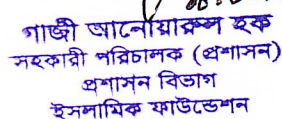 গাজী আনোয়ারুল হক
সহকারী পরিচালক (প্রশাসন)
প্রশাসন বিভাগ
ইসলামিক ফাউন্ডেশন